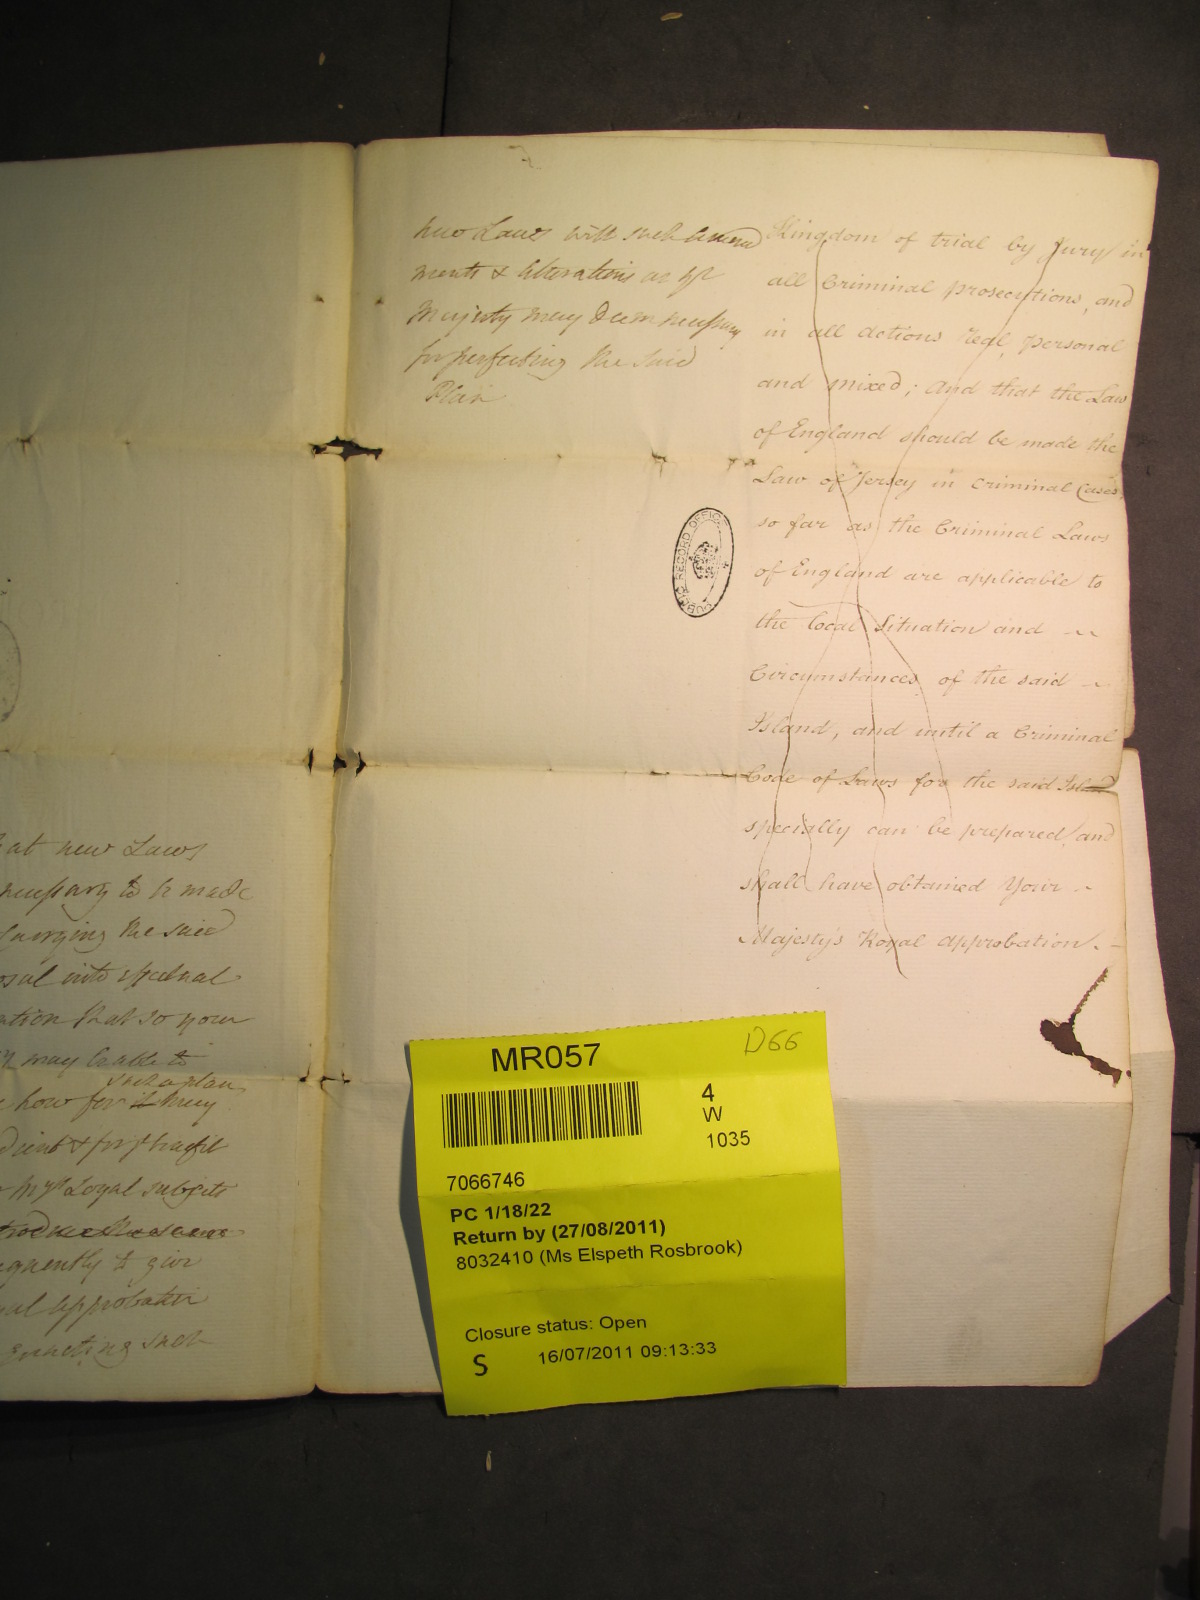 at new Laws
necessary to be made
carrying the said
into effectual
that so your
may be able to
such a plan
how far it may
& for ye benefit
Loyal subjects
to give
approbation
enacting such
new Laws with such amend
ments & alterations as yr
Majesty may deem necessary
for perfecting the said
Plan
Kingdom of trial by Jury in
all Criminal prosecutions, and
in all actions real, personal
and mixed; And that the Law
of England should be made the
Law of Jersey in Criminal Cases,
so far as the Criminal Laws
of England are applicable to
the local Situation and
Circumstances of the said
Island, and until a Criminal
Code of Laws for the said Island
specially can be prepared, and
shall have obtained Your
Majesty's Royal approbation.
PUBLIC RECORD OFFICE
MR057
D66
4
W
1035
7066746
PC 1/18/22
Return by (27/08/2011)
8032410 (Ms Elspeth Rosbrook)
Closure status: Open
S 16/07/2011 09:13:33